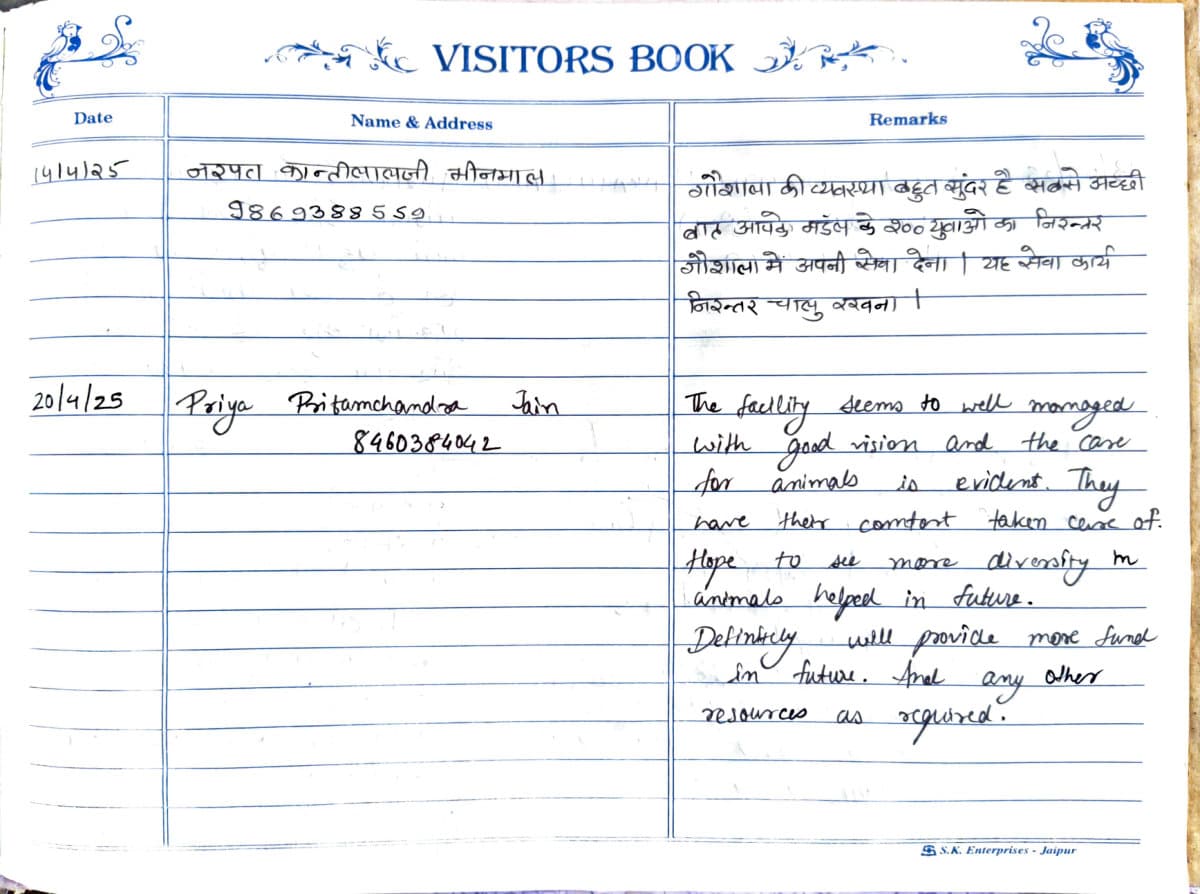 VISITORS BOOK
Date
Name & Address
Remarks
14/4/25
नरपत कान्तीलालजी भीनमाल
9869388559
गौशाला की व्यवस्था बहुत सुंदर है सबसे अच्छी
बात आपके मडंल के २०० युवाओ का निरन्तर
गौशाला में अपनी सेवा देना । यह सेवा कार्य
निरन्तर चालु रखना ।
20/4/25
Priya Pritamchandra Jain
8460384042
The facility seems to well managed
with good vision and the care
for animals is evident. They
have their comfort taken care of.
Hope to see more diversity in
animals helped in future.
Definitely will provide more fund
in future. And any other
resources as required.
S.K. Enterprises - Jaipur